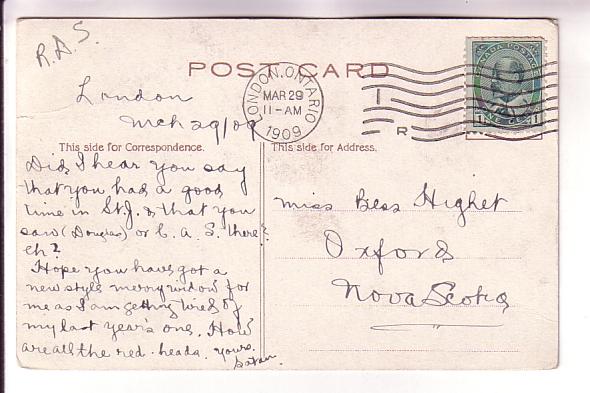 R.A.S.
POST CARD
London
Mch 29/09
LONDON, ONTARIO
MAR 29
11-AM
1909
R
CANADA POSTAGE
1 ONE CENT 1
This side for Correspondence.
This side for Address.
Did I hear you say
that you had a good
time in St. J. & that you
saw (Douglas) or C. A. S. there?
eh?
Hope you have got a
new style merry widow for
me as I am getting tired of
my last year's one. How
are all the red-heads. yours.
Satan.
Miss Bess Highet
Oxford
Nova Scotia